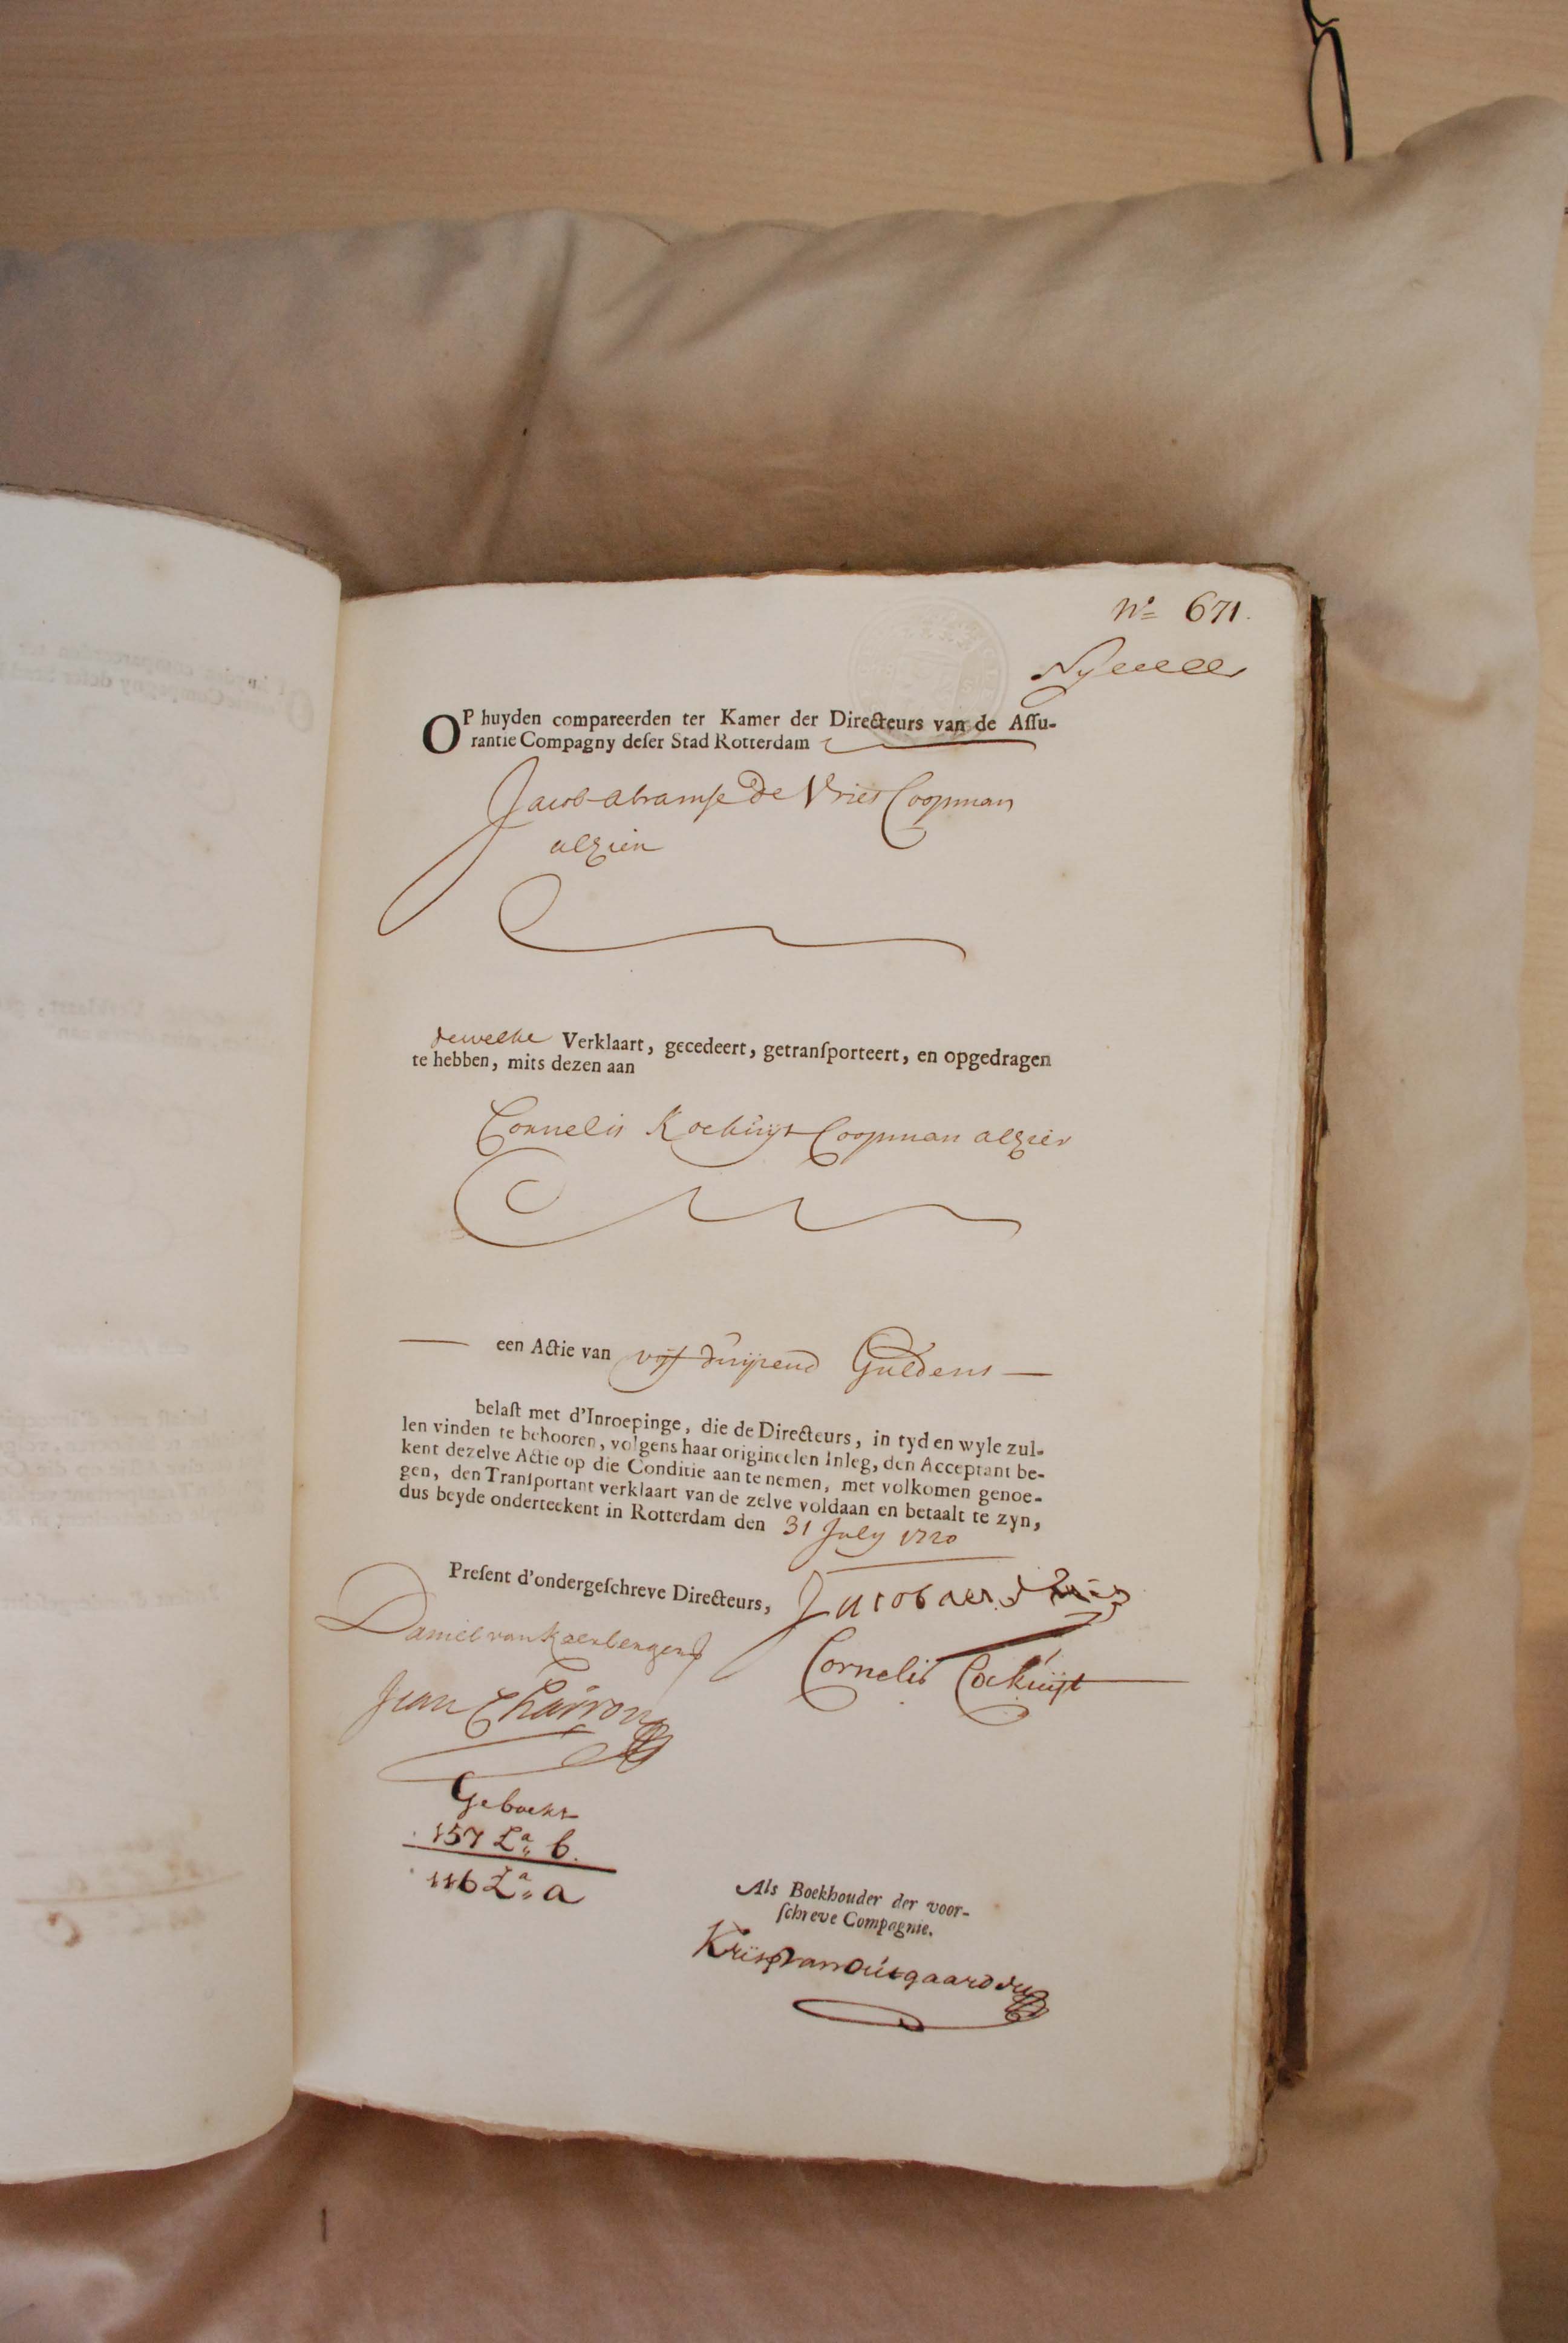 N° 671.
OP huyden compareerden ter Kamer der Directeurs van de Assu-
rantie Compagny deser Stad Rotterdam
Jacob Abramse De Vries Coopman
alhier
dewelke Verklaart, gecedeert, getransporteert, en opgedragen
te hebben, mits dezen aan
Cornelis Kockuijt Coopman alhier
een Actie van vijf duijsend Guldens
belast met d'Inroepinge, die de Directeurs, in tyd en wyle zul-
len vinden te behooren, volgens haar origineelen Inleg, den Acceptant be-
kent dezelve Actie op die Conditie aan te nemen, met volkomen genoe-
gen, den Transportant verklaart van de zelve voldaan en betaalt te zyn,
dus beyde onderteekent in Rotterdam den 31 July 1720
Present d'ondergeschreve Directeurs,
Jacob
Daniel van
Cornelis Cockuijt
Jean Charron
Geboekt
157 La b.
116 La a
Als Boekhouder der voor-
schreve Compagnie.